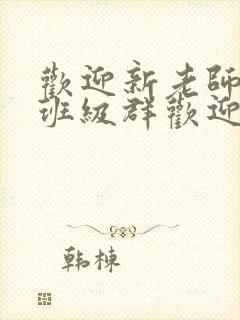 歡迎新老師
班級群歡迎
韩栋